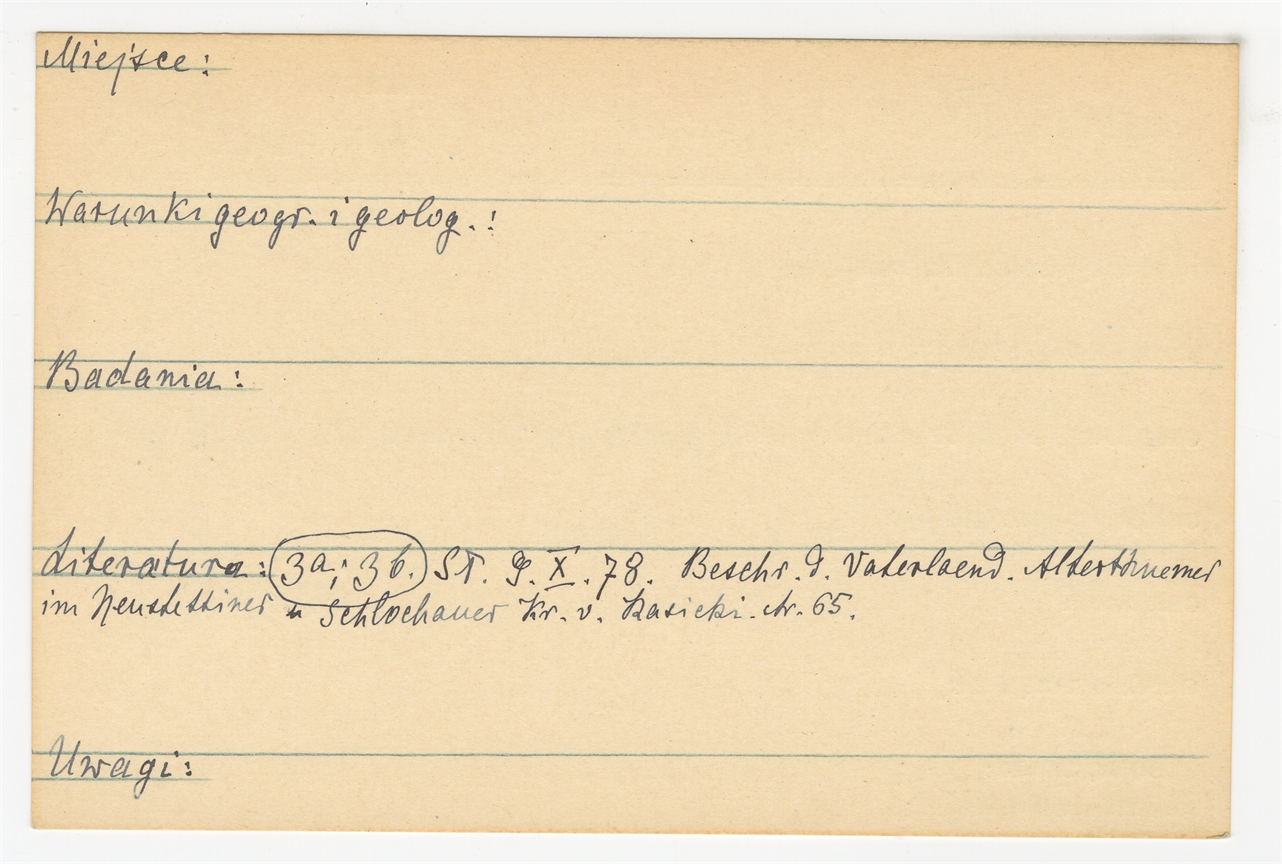 Miejsce:
Warunki geogr. i geolog.:
Badania:
Literatura: 3a; 3b. ST. G. X. 78. Beschr. d. Vaterlaend. Alterthuemer
im Neustettiner u Schlochauer Kr. v. Kasicki. str. 65.
Uwagi: